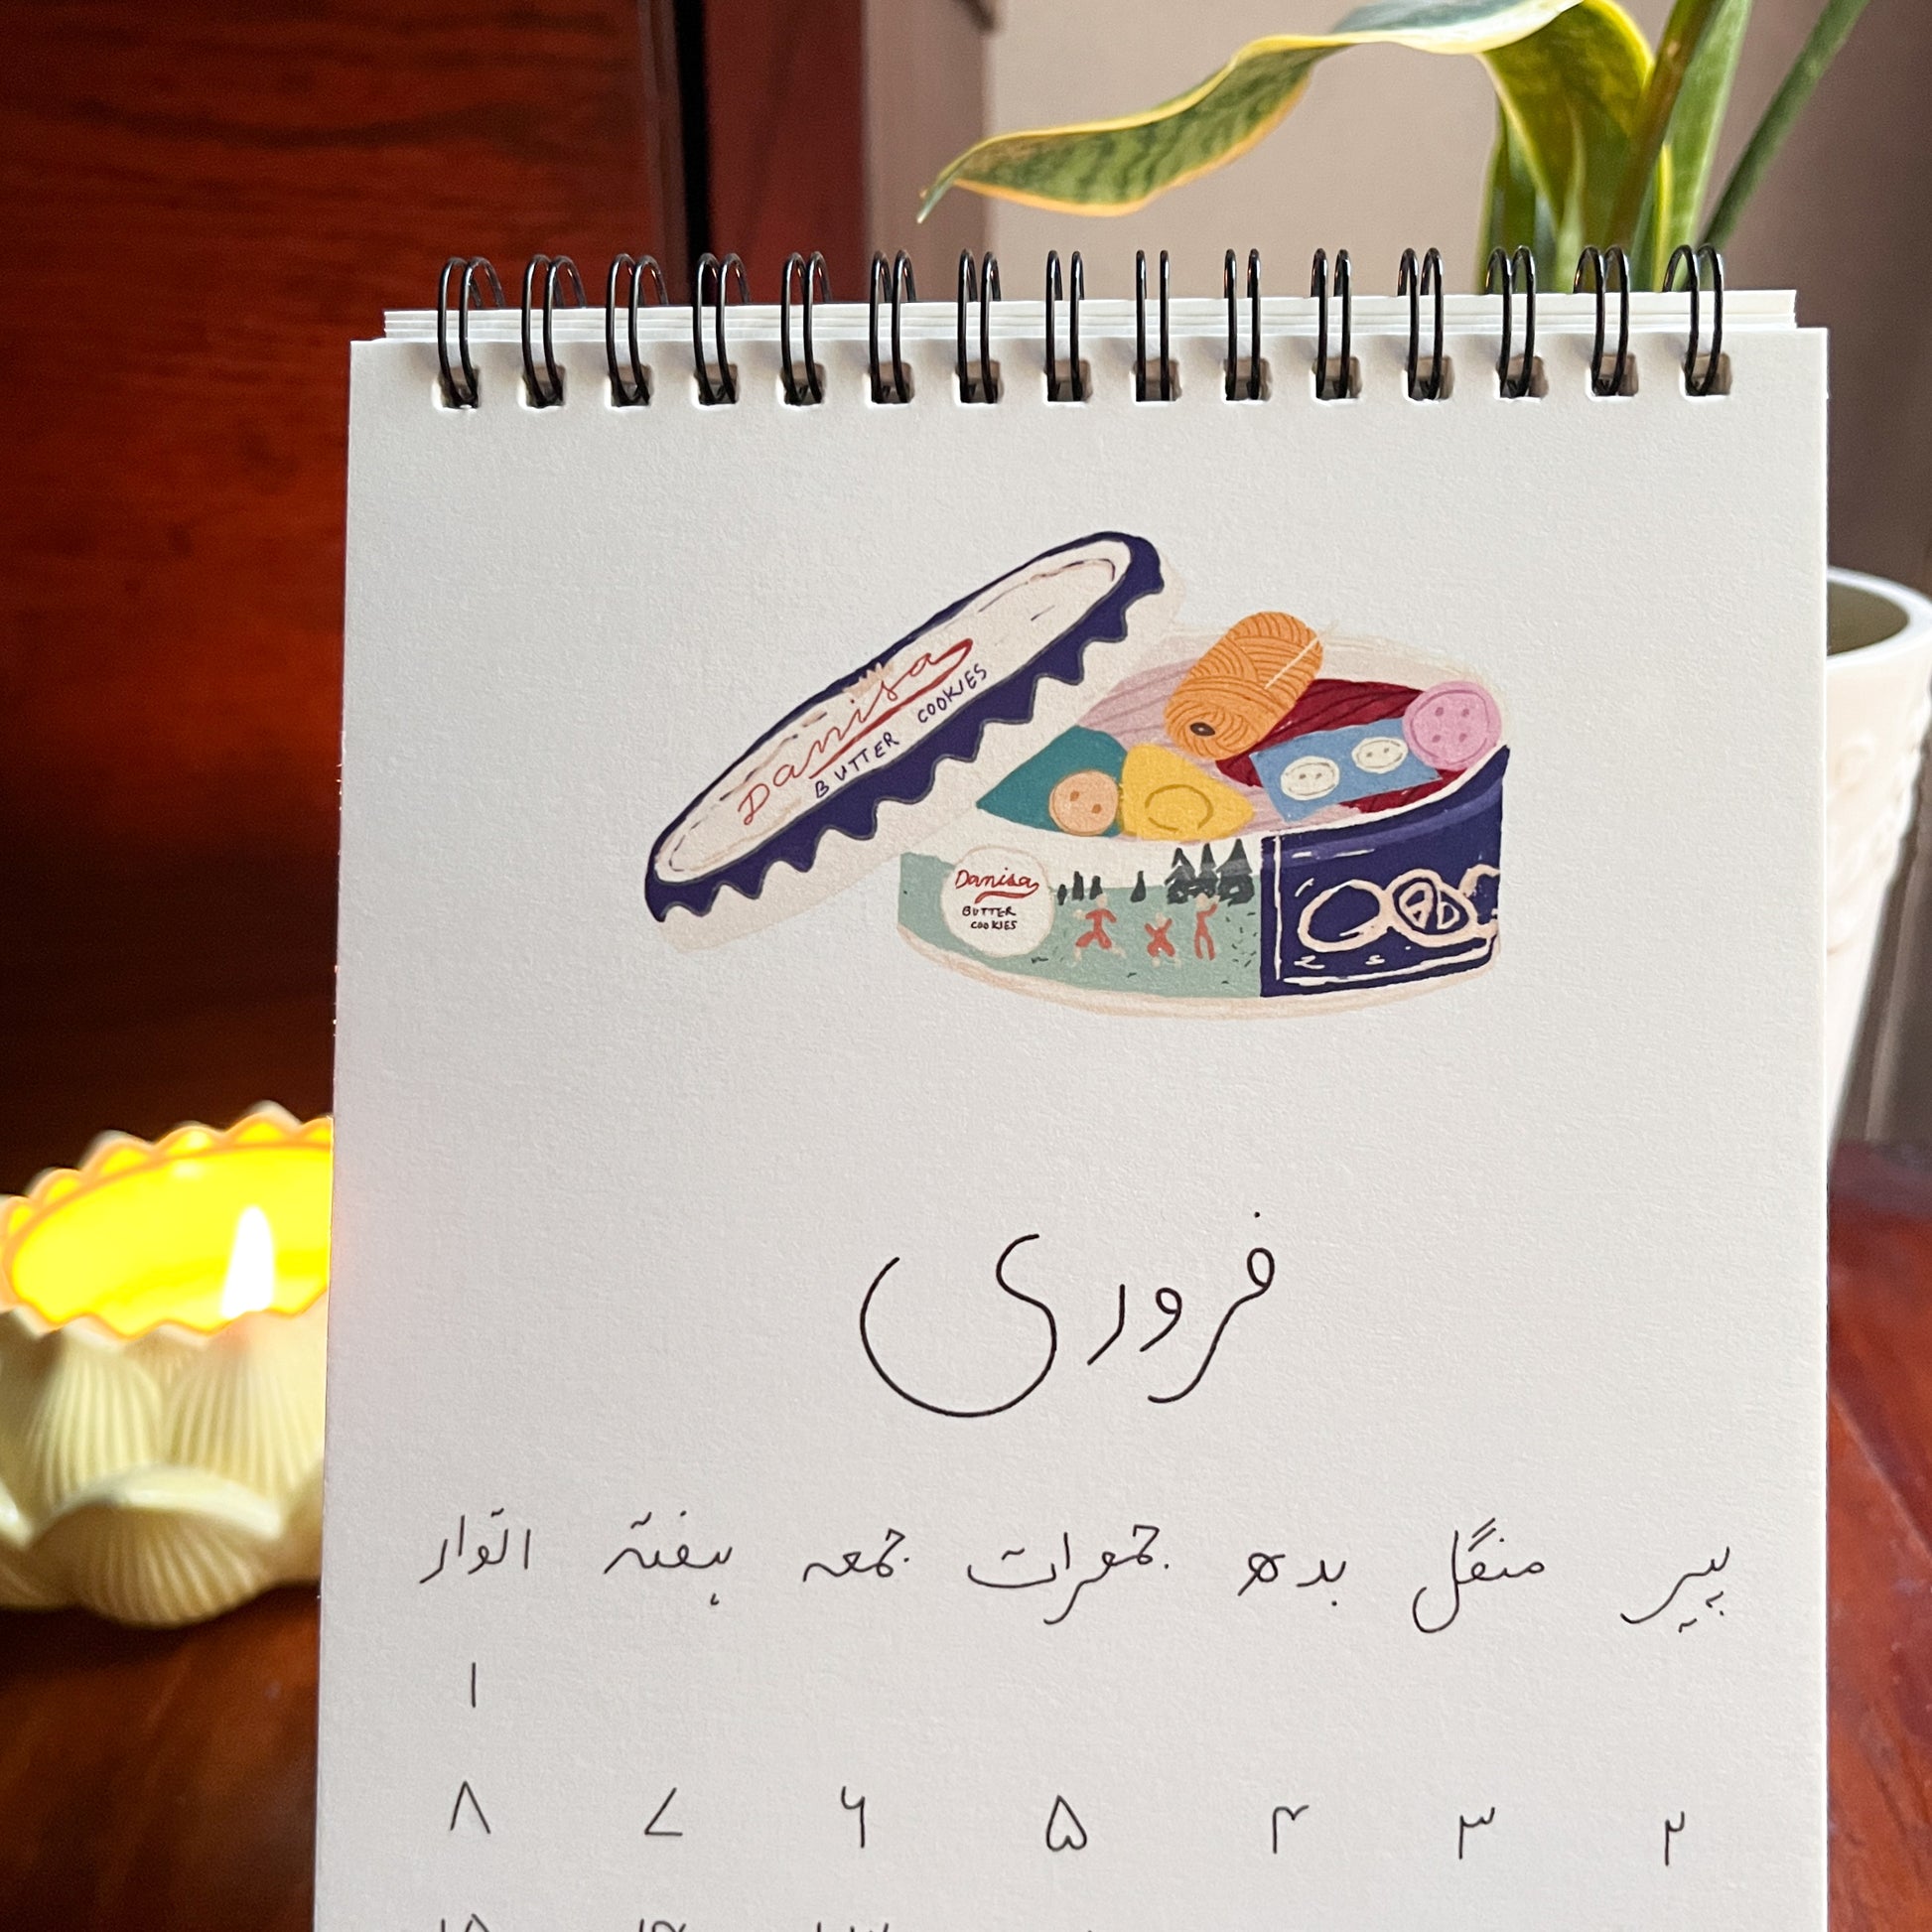 Danisa
BUTTER COOKIES
Danisa
BUTTER
COOKIES
فروری
پیر منگل بدھ جمعرات جمعہ ہفتہ اتوار
۱
۲ ۳ ۴ ۵ ۶ ۷ ۸